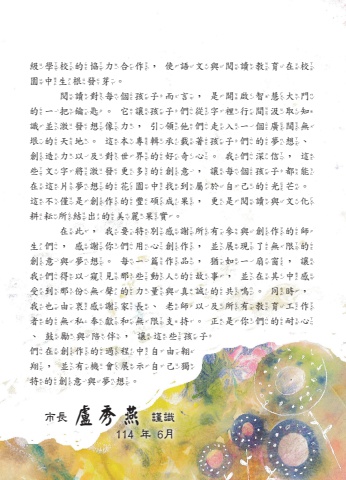 級學校的協力合作，使語文與閱讀教育在校
園中生根發芽。
閱讀對每個孩子而言，是開啟智慧大門
的一把鑰匙。它讓孩子們從字裡行間汲取知
識並激發想像力，引領他們走入一個廣闊無
垠的天地。這本專輯承載著孩子們的夢想、
創造力以及對世界的好奇心。我們深信，這
些文字將激發更多的創意，讓每個孩子都能
在這片夢想的花園中找到屬於自己的光芒。
這不僅是創作的豐碩成果，更是閱讀與文化
耕耘所結出的美麗果實。
在此，我要特別感謝所有參與創作的師
生們，感謝你們用心創作，並展現了無限的
創意與夢想。每一篇作品，猶如一扇窗，讓
我們得以窺見那些動人的故事，並在其中感
受到那份無聲的力量與真誠的共鳴。同時，
我也由衷感謝家長、老師以及所有教育工作
者的無私奉獻和無限支持。正是你們的耐心
、鼓勵與陪伴，讓這些孩子
們在創作的過程中自由翱
翔，並有機會展示自己獨
特的創意與夢想。
市長 盧秀燕 謹識
114 年 6月